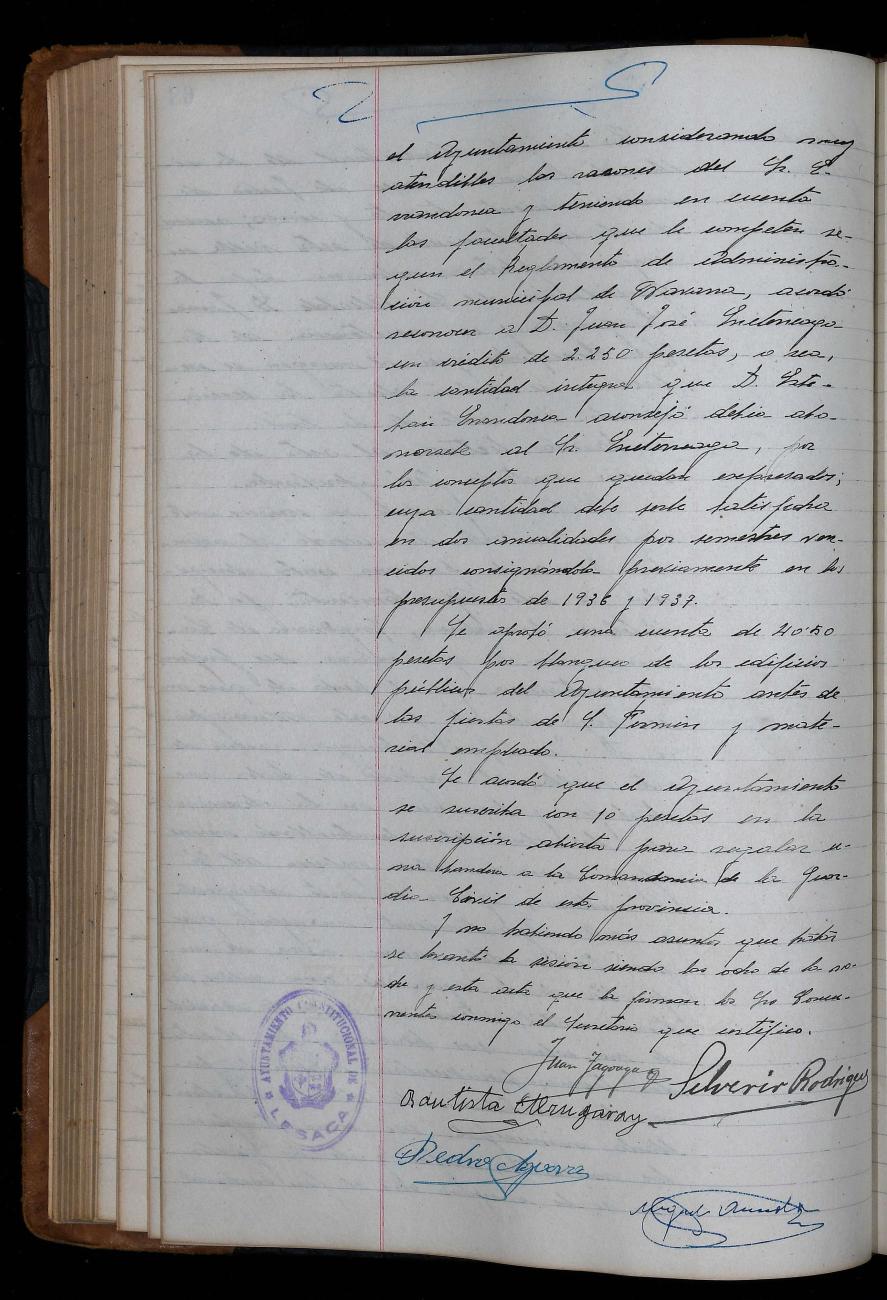 el Ayuntamiento considerando muy
atendibles las razones del Sr. E-
randonea y teniendo en cuenta
las facultades que le competen se-
gun el Reglamento de Administra-
cion municipal de Navarra, acordó
reconocer a D. Juan José
un crédito de 2.250 pesetas, o sea,
la cantidad integra que D. Este-
ban Erandonea aconsejó debia abo-
narsele al Sr. por
los conceptos que quedan expresados;
cuya cantidad debe serle satisfecha
en dos anualidades por semestres ven-
cidos consignándola previamente en los
presupuestos de 1936 y 1937.
Se aprobó una cuenta de
pesetas por blanqueo de los edificios
públicos del Ayuntamiento antes de
las fiestas de S. Fermin y mate-
rial empleado.
Se acordó que el Ayuntamiento
se suscriba con 10 pesetas en la
suscripción abierta para regalar u-
na bandera a la Comandancia de la Guar-
dia Civil de esta provincia.
Y no habiendo más asuntos que tratar
se levantó la sesión siendo las ocho de la no-
che y esta acta que la firman los Srs Concu-
rrentes conmigo el Secretario que certifico.
Juan
Silverio Rodriguez
Bautista
Pedro
Miguel
AYUNTAMIENTO CONSTITUCIONAL DE
LESACA